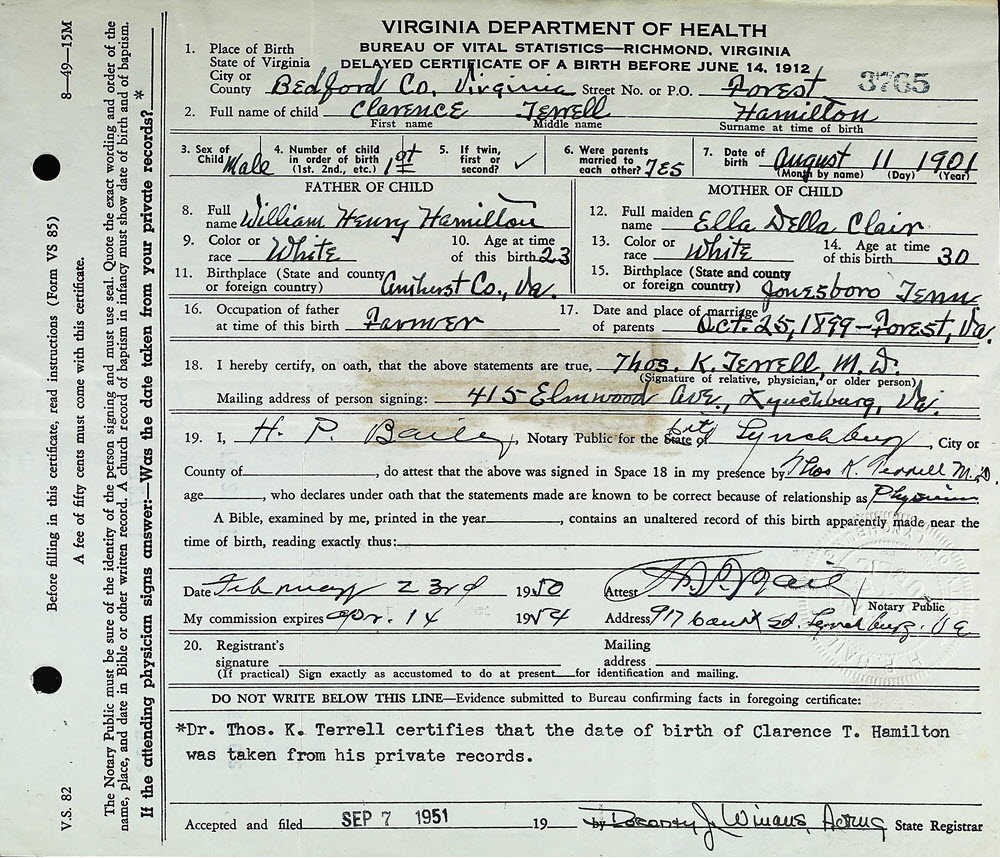 VIRGINIA DEPARTMENT OF HEALTH
BUREAU OF VITAL STATISTICS—RICHMOND, VIRGINIA
DELAYED CERTIFICATE OF A BIRTH BEFORE JUNE 14, 1912
3765
1. Place of Birth
State of Virginia
City or County Bedford Co. Virginia Street No. or P.O. Forest
2. Full name of child Clarence Terrell Hamilton
First name Middle name Surname at time of birth
3. Sex of Child Male 4. Number of child in order of birth (1st. 2nd., etc.) 1st 5. If twin, first or second? ✓ 6. Were parents married to each other? Yes 7. Date of birth August 11 1901
(Month by name) (Day) (Year)
FATHER OF CHILD MOTHER OF CHILD
8. Full name William Henry Hamilton 12. Full maiden name Ella Della Clair
9. Color or race White 10. Age at time of this birth 23 13. Color or race White 14. Age at time of this birth 30
11. Birthplace (State and county or foreign country) Amherst Co., Va. 15. Birthplace (State and county or foreign country) Jonesboro Tenn
16. Occupation of father at time of this birth Farmer 17. Date and place of marriage of parents Oct. 25, 1899—Forest, Va.
18. I hereby certify, on oath, that the above statements are true, Thos. K. Terrell, M.D.
(Signature of relative, physician, or older person)
Mailing address of person signing: 415 Elmwood Ave., Lynchburg, Va.
19. I, H. P. Baily, Notary Public for the State of city Lynchburg, City or
County of , do attest that the above was signed in Space 18 in my presence by Thos K. Terrell M.D.
age , who declares under oath that the statements made are known to be correct because of relationship as Physician
A Bible, examined by me, printed in the year , contains an unaltered record of this birth apparently made near the
time of birth, reading exactly thus:
Date February 23rd 1950 Attest
Notary Public
My commission expires Apr. 14 1954 Address 917 Court St. Lynchburg. Va
20. Registrant's signature Mailing address
(If practical) Sign exactly as accustomed to do at present for identification and mailing.
DO NOT WRITE BELOW THIS LINE—Evidence submitted to Bureau confirming facts in foregoing certificate:
*Dr. Thos. K. Terrell certifies that the date of birth of Clarence T. Hamilton
was taken from his private records.
Accepted and filed SEP 7 1951 19 by Dorothy J. Winans, Acting State Registrar
V.S. 82 Before filling in this certificate, read instructions (Form VS 85) 8—49—15M
A fee of fifty cents must come with this certificate.
The Notary Public must be sure of the identity of the person signing and must use seal. Quote the exact wording and order of the
name, place, and date in Bible or other written record. A church record of baptism in infancy must show date of birth and of baptism.
If the attending physician signs answer:—Was the date taken from your private records? *